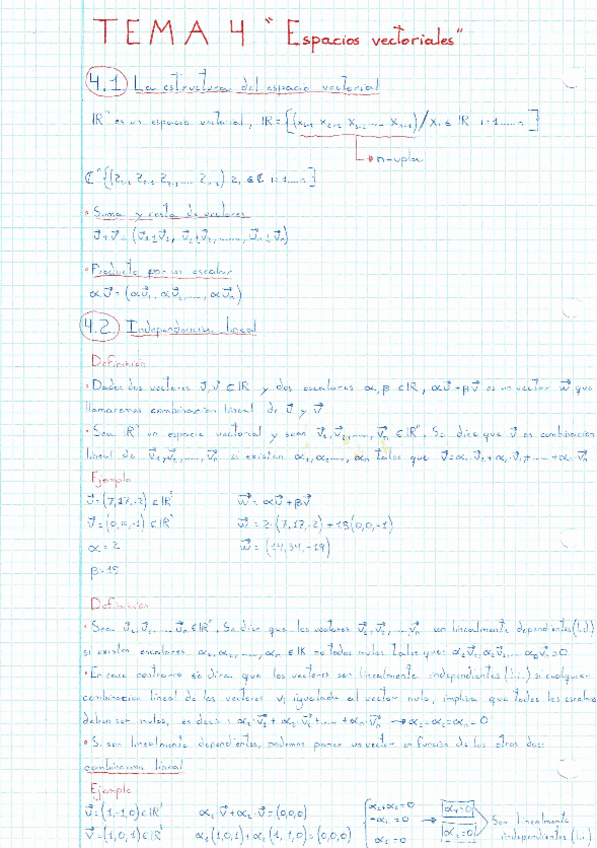 TEMA 4 "Espacios vectoriales"
4.1 La estructura del espacio vectorial
ℝⁿ es un espacio vectorial, ℝ = {(x₁, x₂, x₃, ... xₙ) / xᵢ ∈ ℝ i=1......n}
→ n-upla
ℂⁿ {(z₁, z₂, z₃, ... zₙ) zᵢ ∈ ℂ i=1....n}
• Suma y resta de vectores
• Producto por un escalar
αū = (αū₁, αū₂, ....., αūₙ)
4.2. Independencia lineal
Definición
• Dados dos vectores ū, v̄ ∈ ℝ y dos escalares α, β ∈ ℝ, αū + βv̄ es un vector w̄ que
llamaremos combinación lineal de ū y v̄
• Sea ℝⁿ un espacio vectorial y sean v̄₁, v̄₂, ...., v̄ₙ ∈ ℝⁿ. Se dice que v̄ es combinación
lineal de v̄₁, v̄₂, ....., v̄ₙ si existen α₁, α₂, ...., αₙ tales que v̄ = α₁·v̄₁ + α₂·v̄₂ + ... + αₙ·v̄ₙ
Ejemplo
ū = (7,17,-2) ∈ ℝ³ w̄ = αū + βv̄
v̄ = (0,0,-1) ∈ ℝ³ w̄ = 2·(7,17,-2) + 15(0,0,-1)
α = 2 w̄ = (14,34,-19)
β = 15
Definición
• Sean v̄₁, v̄₂, ..... v̄ₙ ∈ ℝⁿ. Se dice que los vectores v̄₁, v̄₂, .... v̄ₙ son linealmente dependientes (l.d.)
si existen escalares α₁, α₂, ....., αₙ ∈ ℝ no todos nulos tales que:
• En caso contrario se dice que los vectores son linealmente independientes (l.i.) si cualquier
combinación lineal de los vectores vᵢ igualada al vector nulo, implica que todos los escalares
deben ser nulos, es decir: α₁·v̄₁ + α₂·v̄₂ + .... + αₙ·v̄ₙ → α₁ = α₂ = αₙ = 0
• Si son linealmente dependientes, podemos poner un vector en función de los otros dos:
combinación lineal
Ejemplo
ū = (1,-1,0) ∈ ℝ³ α₁·v̄ + α₂·ū = (0,0,0) α₁+α₂=0 α₁=0 Son linealmente
v̄ = (1,0,1) ∈ ℝ³ α₁(1,0,1) + α₂(1,-1,0) = (0,0,0) -α₂=0 → α₂=0 independientes (l.i.)
α₁=0